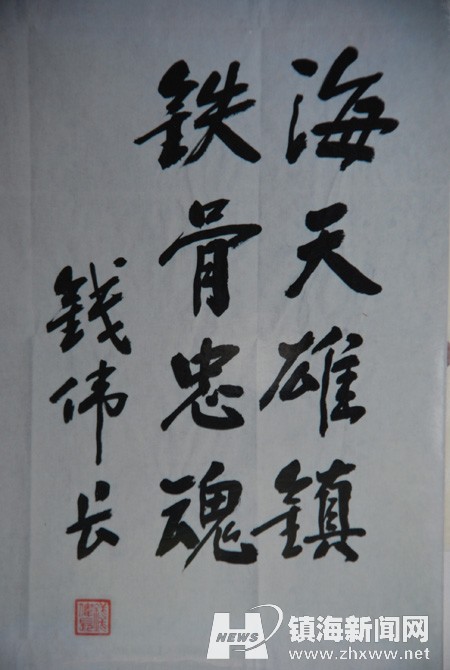 海天雄鎮
鉄骨忠魂
錢伟长
NEWS
镇海新闻网
www.zhxww.net